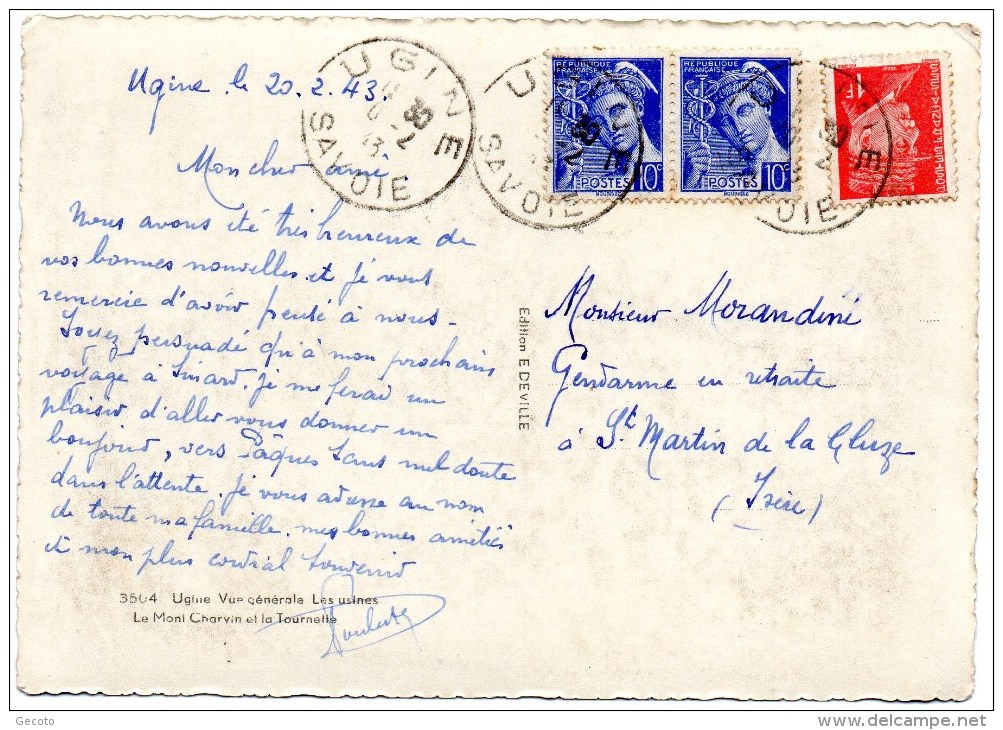 Ugine le 20.2.43.
UGINE
11 30
20-2
43
SAVOIE
UGINE
30
SAVOIE
30
E
OIE
RÉPUBLIQUE
FRANÇAISE
POSTES 10c
RÉPUBLIQUE
FRANÇAISE
POSTES 10c
1F
POSTES FRANÇAISES
Mon cher ami.
Nous avons été très heureux de
vos bonnes nouvelles. et je vous
remercie d'avoir pensé à nous-
Soyez persuadé qu'à mon prochain
voyage à Sinard. je me ferai un
plaisir d'aller vous donner un
bonjour, vers Pâques sans nul doute
dans l'attente. je vous adresse au nom
de toute ma famille. mes bonnes amitiés
et mon plus cordial souvenir
Edition E DEVILLE
Monsieur Morandini
Gendarme en retraite
à St. Martin de la Cluze
(Isère)
3504 Ugine Vue générale Les usines
Le Mont Charvin et la Tournette
Gecoto
www.delcampe.net